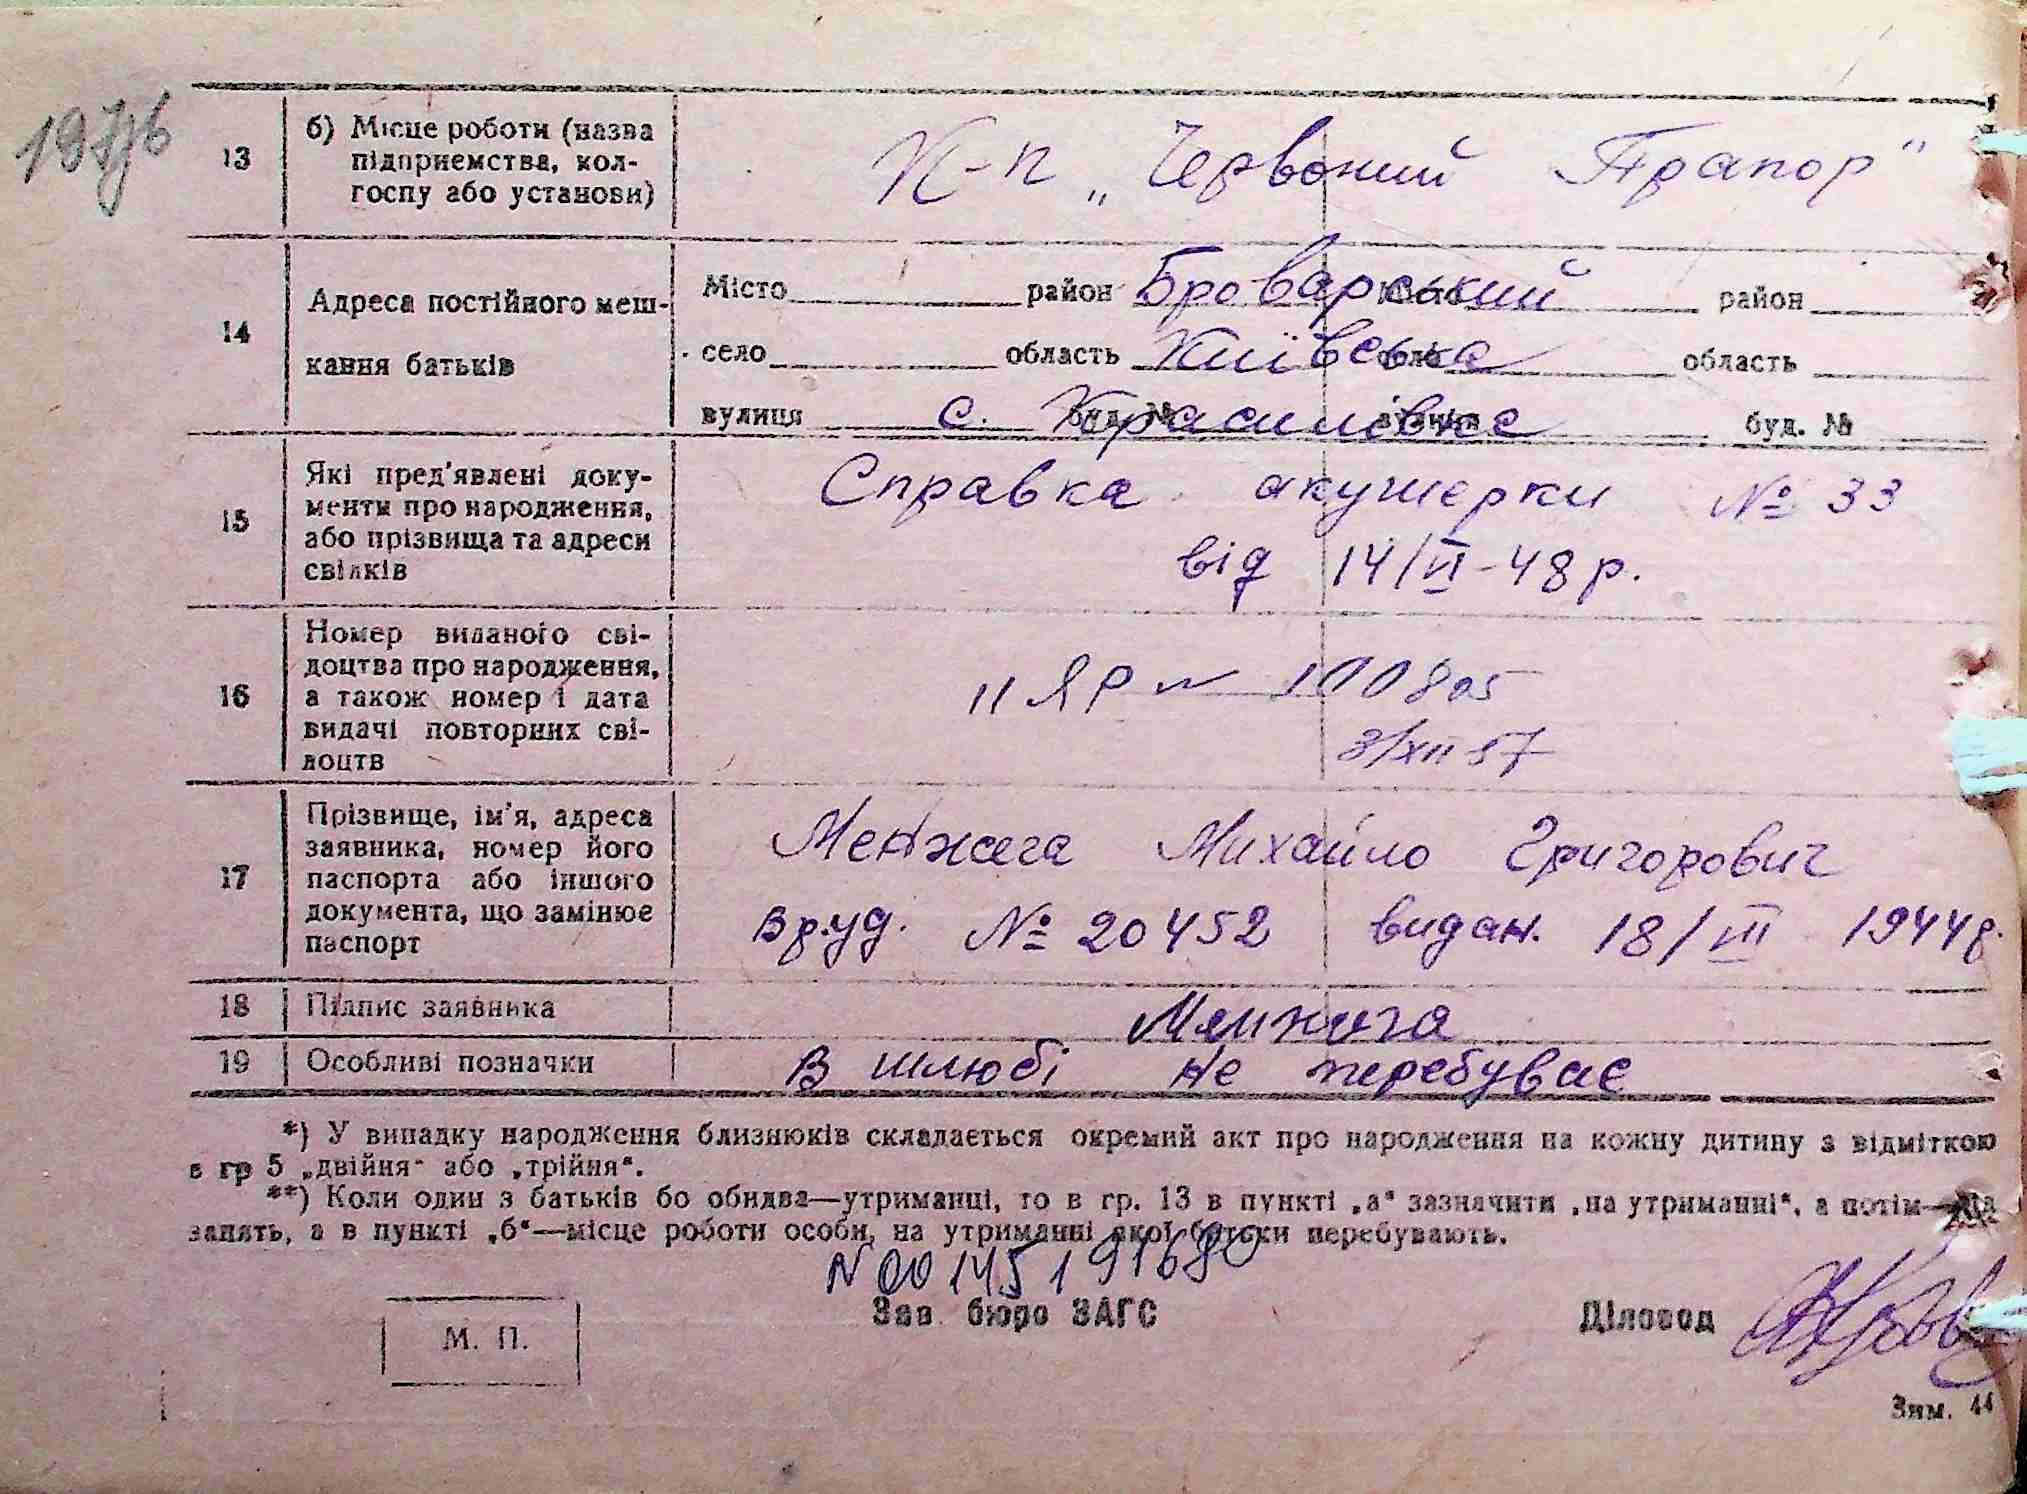 13 б) Місце роботи (назва
підприемства, кол-
госпу або установи)
К-п „Червоний Прапор"
14 Адреса постійного меш-
кання батьків
Місто район Броварський район
село область Київська область
вулиця с. Красиловка буд. №
15 Які пред'явлені доку-
менти про народження,
або прізвища та адреси
свідків
Справка акушерки № 33
від 14/VI-48 р.
16 Номер виданого сві-
доцтва про народження,
а також номер і дата
видачі повторних сві-
доцтв
II ЯР № 100805
3/XII 57
17 Прізвище, ім'я, адреса
заявника, номер його
паспорта або іншого
документа, що замінює
паспорт
Менжега Михайло Григорович
вр.уд. № 20452 видан. 18/III 1944р.
18 Підпис заявника
19 Особливі позначки В шлюбі не перебуває
*) У випадку народження близнюків складається окремий акт про народження на кожну дитину з відміткою
в гр 5 „двійня" або „трійня".
**) Коли один з батьків бо обидва—утриманці, то в гр. 13 в пункті „а" зазначити „на утриманні", а потім—
занять, а в пункті „б"—місце роботи особи, на утриманні якої батьки перебувають.
N 00145191680
Зав. бюро ЗАГС Діловод
М. П.
Зим. 44